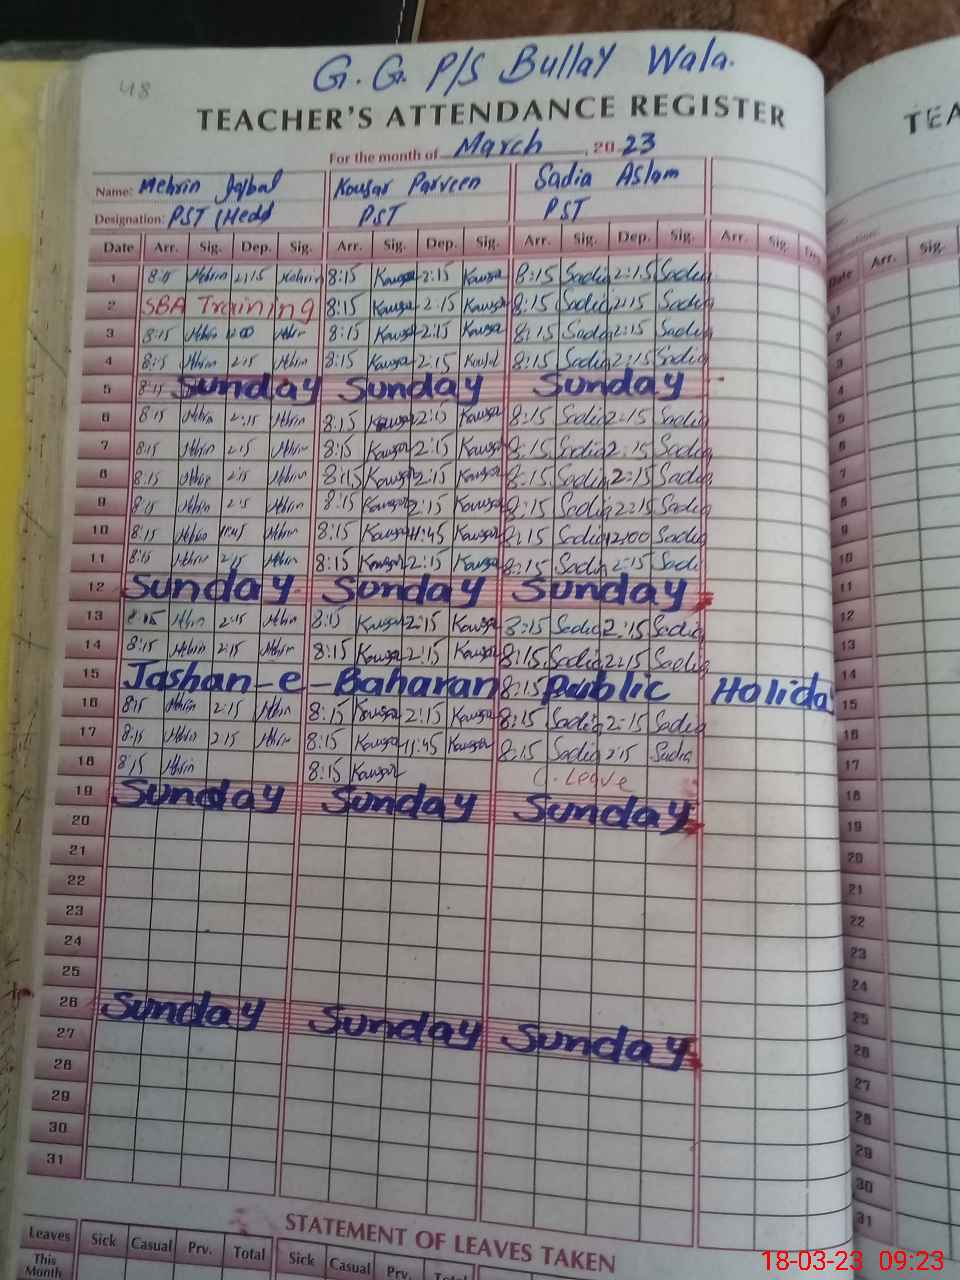 48
G.G. P/S Bullay Wala.
TEACHER'S ATTENDANCE REGISTER
TEA
For the month of March, 2023
Name: Mehrin Iqbal Kousar Parveen Sadia Aslam
Designation: PST (Head PST PST
Date Arr. Sig. Dep. Sig. Arr. Sig. Dep. Sig. Arr. Sig. Dep. Sig. Arr. Sig. Dep
1 8:15 Mehrin 2:15 Mehrin 8:15 Kausar 2:15 Kausar 8:15 Sadia 2:15 Sadia
2 SBA Training 8:15 Kausar 2:15 Kausar 8:15 Sadia 2:15 Sadia
3 8:15 Mehrin 12:00 Mehrin 8:15 Kausar 2:15 Kausar 8:15 Sadia 2:15 Sadia
4 8:15 Mehrin 2:15 Mehrin 8:15 Kausar 2:15 Kausar 8:15 Sadia 2:15 Sadia
5 8:15 Sunday Sunday Sunday
6 8:15 Mehrin 2:15 Mehrin 8:15 Kausar 2:15 Kausar 8:15 Sadia 2:15 Sadia
7 8:15 Mehrin 2:15 Mehrin 8:15 Kausar 2:15 Kausar 8:15 Sadia 2:15 Sadia
8 8:15 Mehrin 2:15 Mehrin 8:15 Kausar 2:15 Kausar 8:15 Sadia 2:15 Sadia
9 8:15 Mehrin 2:15 Mehrin 8:15 Kausar 2:15 Kausar 8:15 Sadia 2:15 Sadia
10 8:15 Mehrin 11:45 Mehrin 8:15 Kausar 11:45 Kausar 8:15 Sadia 12:00 Sadia
11 8:15 Mehrin 2:15 Mehrin 8:15 Kausar 2:15 Kausar 8:15 Sadia 2:15 Sadi
12 Sunday Sunday Sunday
13 8:15 Mehrin 2:15 Mehrin 8:15 Kausar 2:15 Kausar 8:15 Sadia 2:15 Sadia
14 8:15 Mehrin 2:15 Mehrin 8:15 Kausar 2:15 Kausar 8:15 Sadia 2:15 Sadia
15 Jashan-e-Baharan 8:15 public Holiday
16 8:15 Mehrin 2:15 Mehrin 8:15 Kausar 2:15 Kausar 8:15 Sadia 2:15 Sadia
17 8:15 Mehrin 2:15 Mehrin 8:15 Kausar 11:45 Kausar 8:15 Sadia 2:15 Sadia
18 8:15 Mehrin 8:15 Kausar C. Leave
19 Sunday Sunday Sunday
20
21
22
23
24
25
26 Sunday Sunday Sunday
27
28
29
30
31
STATEMENT OF LEAVES TAKEN
Leaves Sick Casual Prv. Total Sick Casual Prv. Total
This Month
Date Arr. Sig.
1
2
3
4
5
6
7
8
9
10
11
12
13
14
15
16
17
18
19
20
21
22
23
24
25
26
27
28
29
30
31
18-03-23 09:23